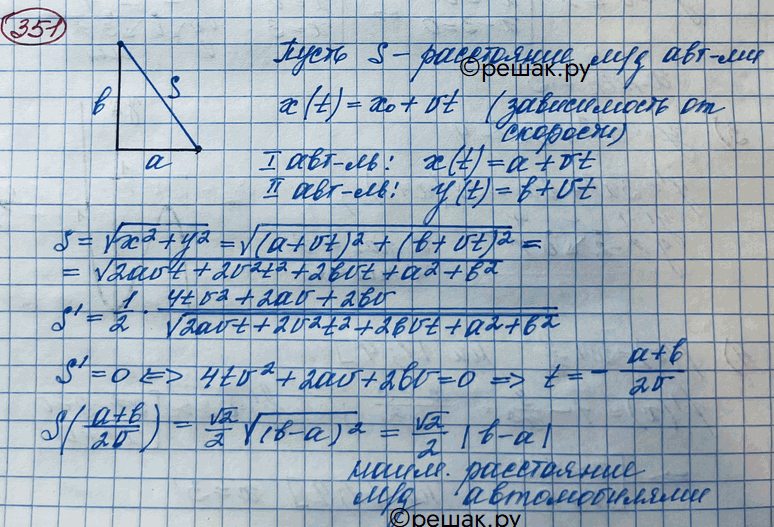 351
Пусть S – расстояние м/д авт-ми
©решак.ру
x(t) = x₀ + vt (зависимость от
скорости)
в
S
a
I авт-ль: x(t) = a + vt
II авт-ль: y(t) = в + vt
S = √(x² + y²) = √((a + vt)² + (в + vt)²) =
= √(2avt + 2v²t² + 2вvt + a² + в²)
S' = 1/2 · (4tv² + 2av + 2вv)/√(2avt + 2v²t² + 2вvt + a² + в²)
S' = 0 <=> 4tv² + 2av + 2вv = 0 => t = - (a+в)/2v
S((a+в)/2v) = √2/2 √((в-a)²) = √2/2 |в-a|
наим. расстояние
м/д автомобилями
©решак.ру